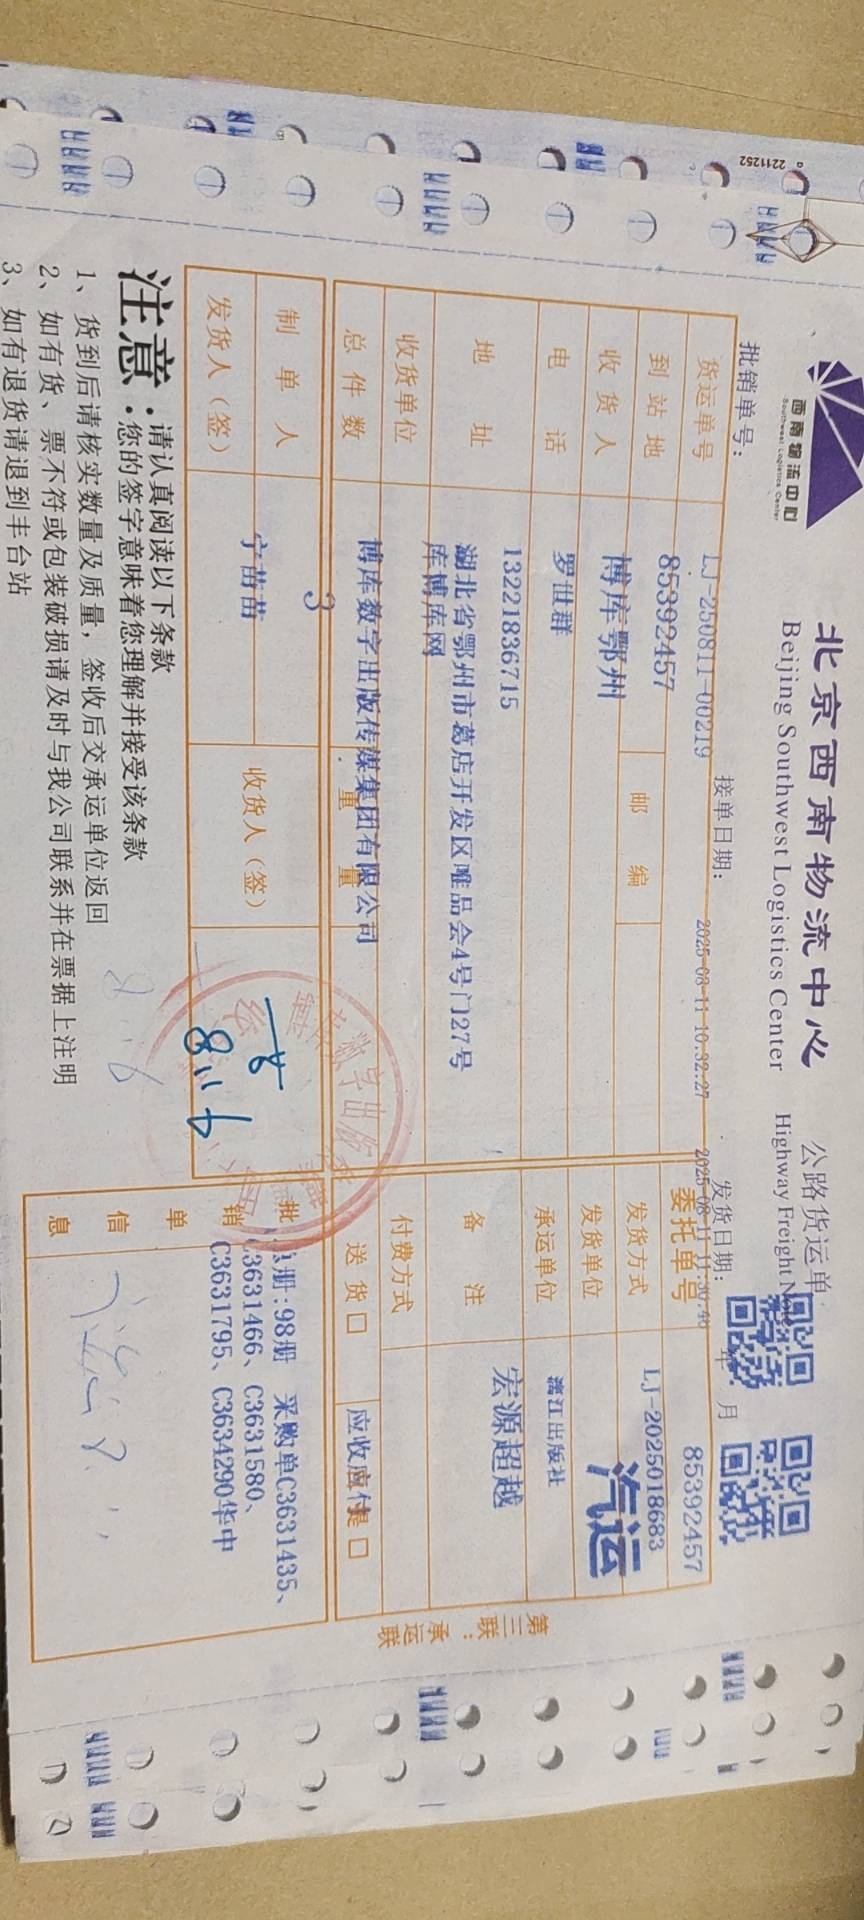 西南物流中心
Southwest Logistics Center
北京西南物流中心 公路货运单
Beijing Southwest Logistics Center Highway Freight Note
批销单号： 接单日期： 发货日期： 年 月
2025-08-11 10:32:27
货运单号 LJ-250811-00219 委托单号 85392457
到站地 85392457 邮编 发货方式 LJ-2025018683
收货人 博库鄂州 发货单位 汽运
电话 罗世群 承运单位 漓江出版社
13221836715
地址 湖北省鄂州市葛店开发区唯品会4号门27号 备注 宏源超越
库博库网
收货单位 付费方式
博库数字出版传媒集团有限公司
总件数 3 重量 送货□ 应收应付 □
制单人 宁苗苗 收货人（签）
发货人（签）
8.16
批销单信息 册:98册 采购单C3631435、
C3631466、C3631580、
C3631795、C3634290华中
第三联：承运联
注意：请认真阅读以下条款
您的签字意味着您理解并接受该条款
1、货到后请核实数量及质量，签收后交承运单位返回
2、如有货、票不符或包装破损请及时与我公司联系并在票据上注明
3、如有退货请退到丰台站
2211252